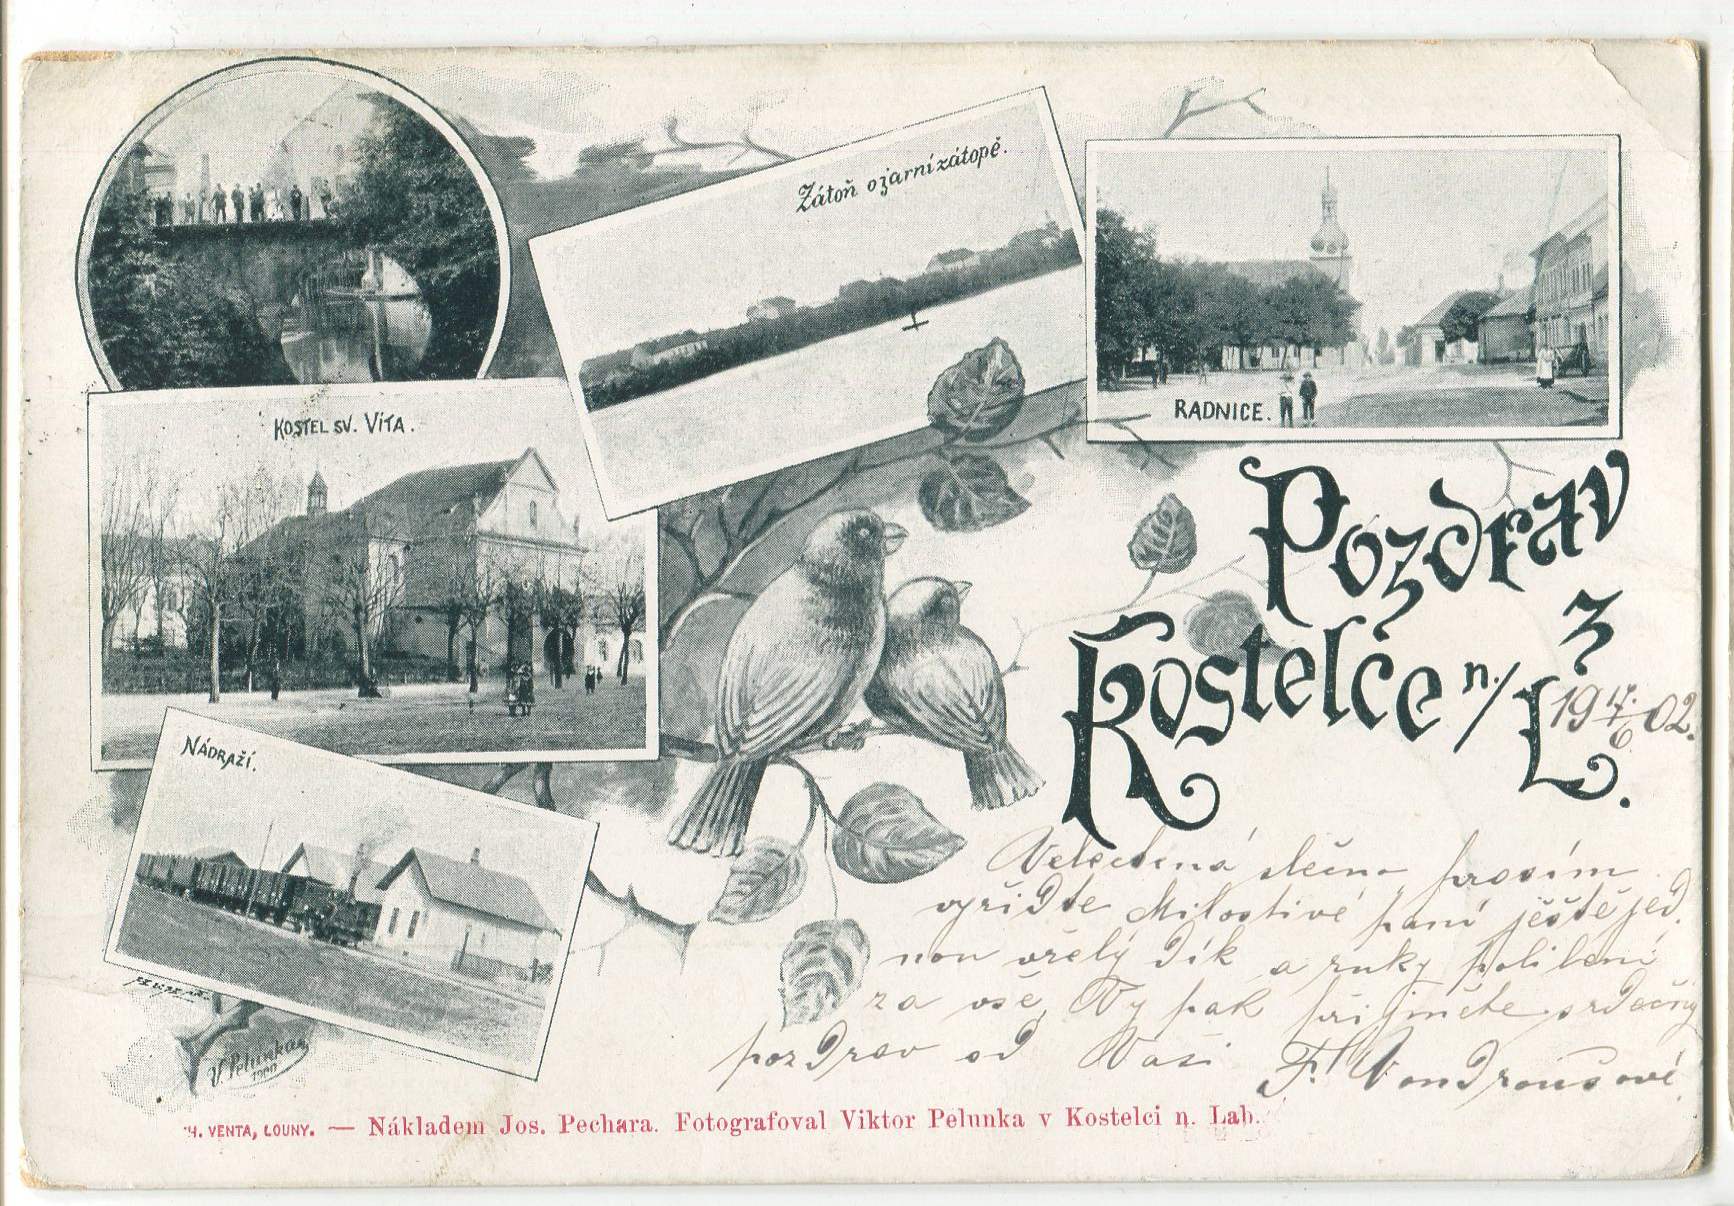 Zátoň o jarní zátopě.
RADNICE.
KOSTEL SV. VÍTA.
NÁDRAŽÍ.
Pozdrav
z
Kostelce n./L.
19 17./6 02.
Velectěná slečno prosím
vyřiďte Milostivé paní ještě jed
nou vřelý dík a ruky políbení
za vše, Vy pak přijměte srdečný
pozdrav od Vaší Fr. Vondroušové.
V. Pelunka
1900
H. VENTA, LOUNY. — Nákladem Jos. Pechara. Fotografoval Viktor Pelunka v Kostelci n. Lab.